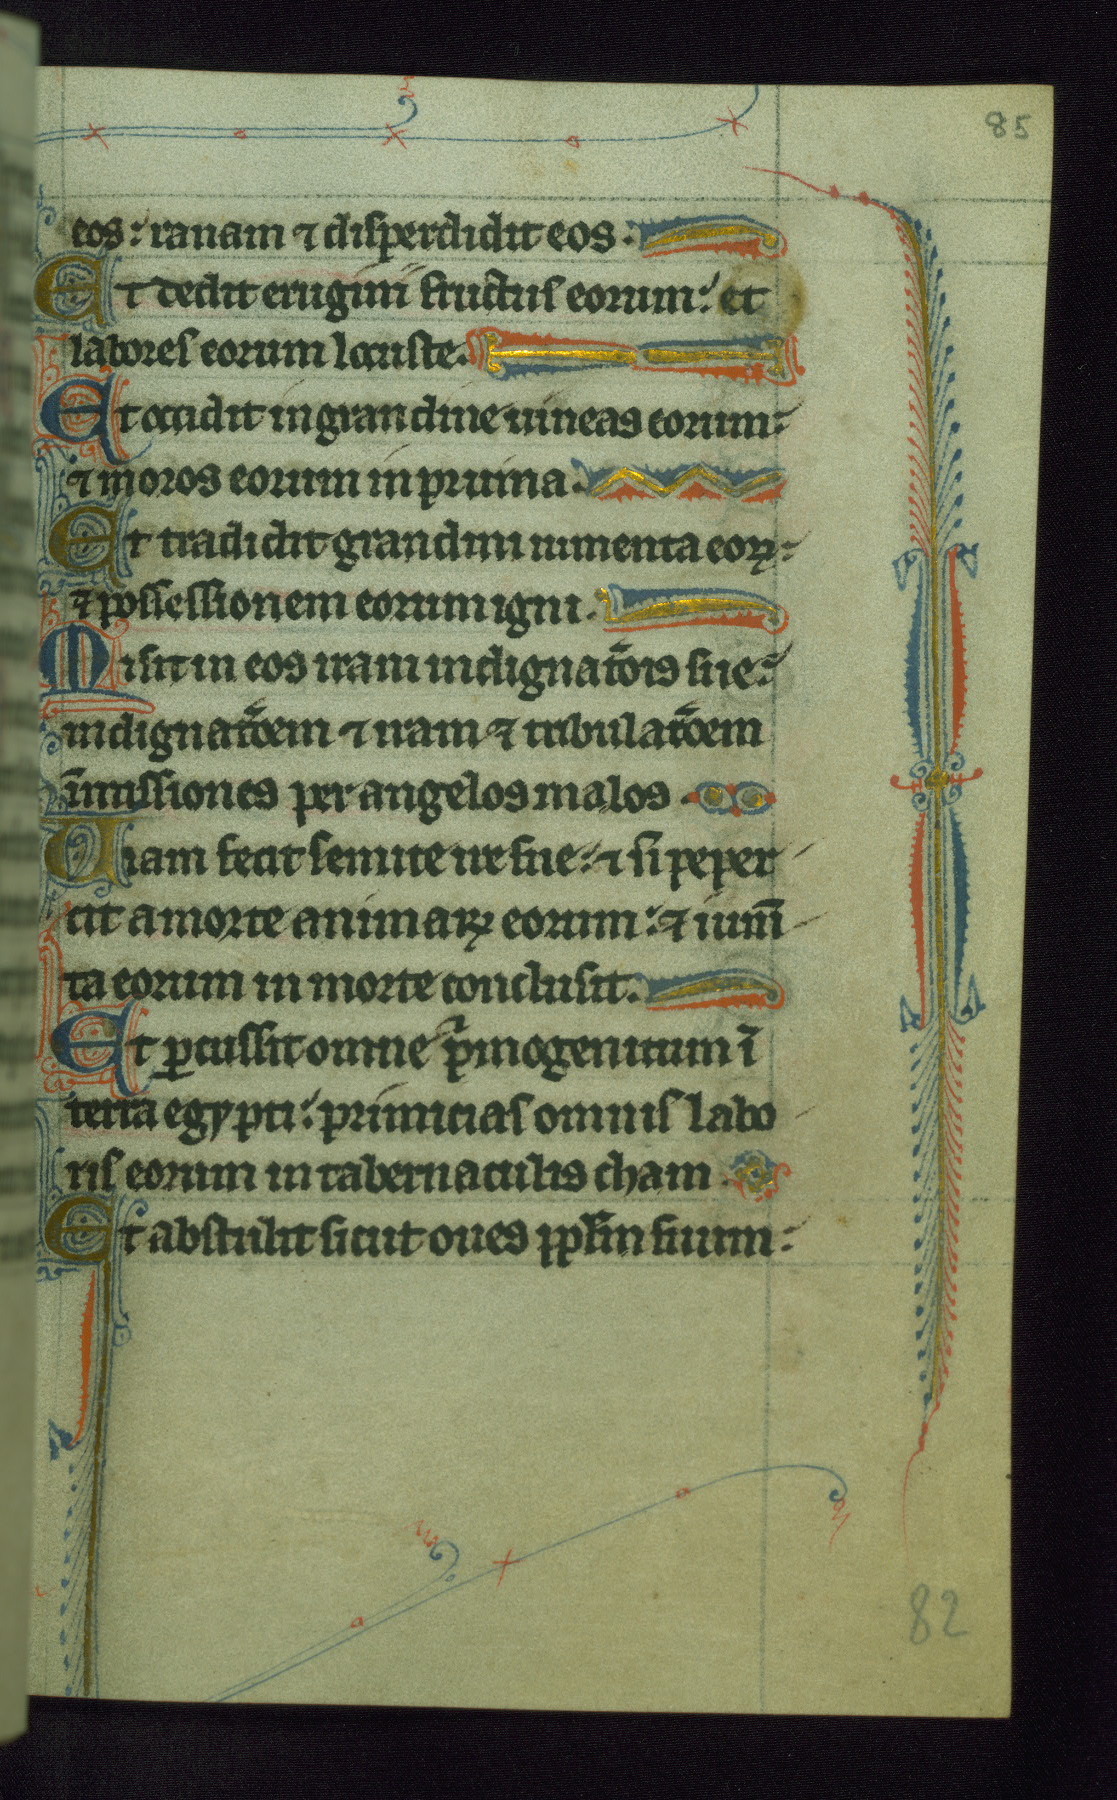 85
eos: ranam ⁊ disperdidit eos.
Et dedit erugini fructus eorum: et
labores eorum locuste.
Et occidit in grandine uineas eorum:
⁊ moros eorum in pruina.
Et tradidit grandini iumenta eoꝝ:
⁊ possessionem eorum igni.
Misit in eos iram indignat̄ois sue:
indignat̄oem ⁊ iram ⁊ tribulat̄oem
īmissiones per angelos malos.
Uiam fecit semite ire sue: ⁊ n̄ peper
cit a morte animaꝝ eorum: ⁊ ium̄
ta eorum in morte conclusit.
Et ꝑcussit omne pͥmogenitum ī
terra egypti: primicias omnis labo
ris eorum in tabernaculis cham.
Et abstulit sicut oues pp̄lm suum:
82